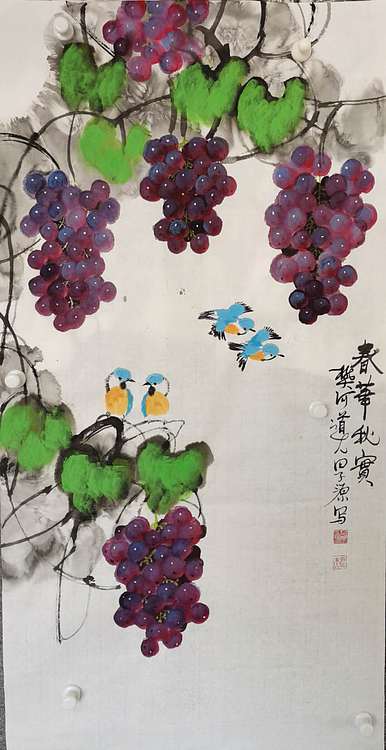 春華秋實
樊河道人田子源写